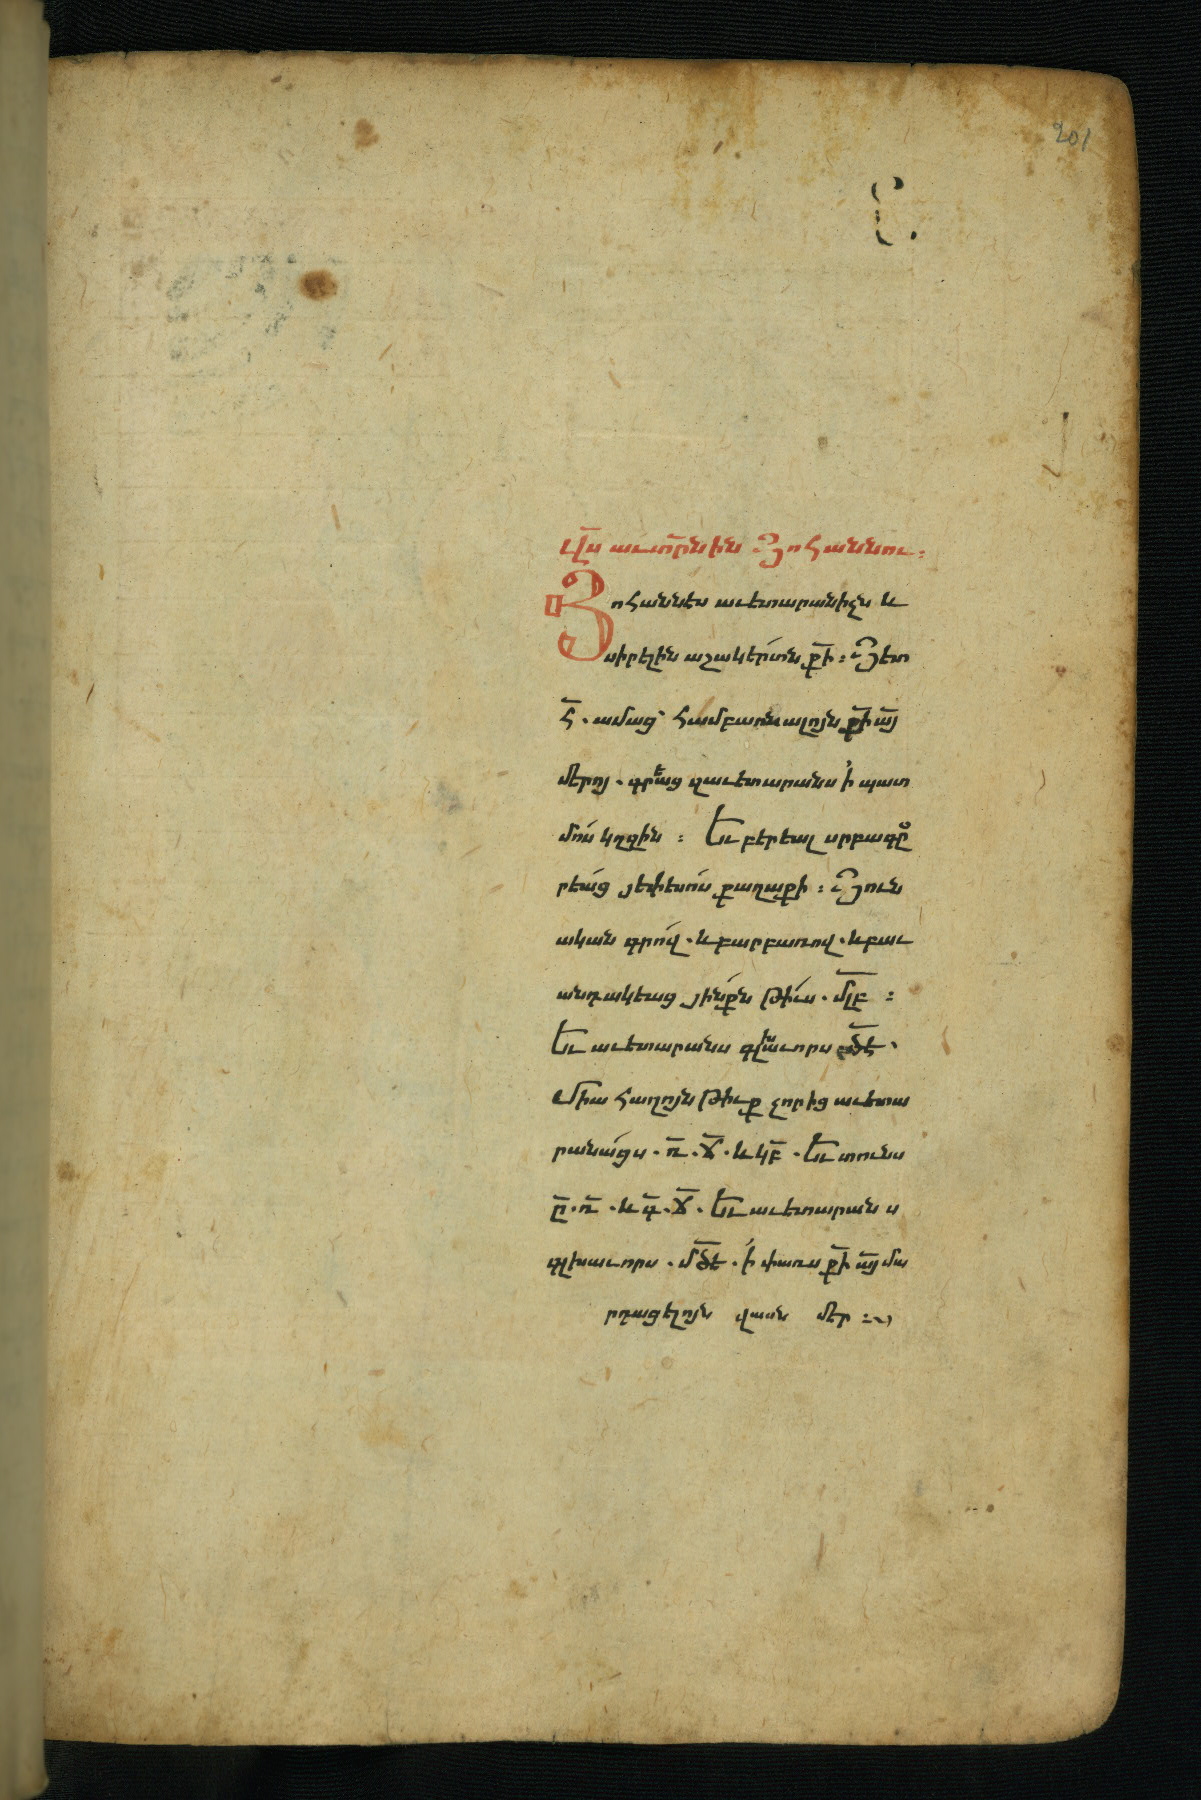 201
Ը.
Վս աւտրնին Յոհաննու։
Յոհաննէս աւետարանիչն և
սիրելին աշակերտն քի։ Յետ
Հ. ամաց համբառնալոյն քի այ
մերոյ. գրեաց զաւետարանս ՚ի պատ
մոս կղզին։ Եւ բերեալ սրբագը
րեաց յեփեսոս քաղաքի։ Յուն
ական գրով. և բարբառով. և բաւ
անդակեաց յինքն թիւս. մլբ։
Եւ աւետարանս գլխաւորս մծե.
Միահաղոյն թիւք չորից աւետա
րանացս. ռ. ճ. և կբ. Եւ տունս
ը. ռ. և գ. ճ. Եւ աւետարանս
գլխաւորս. մծե. ՚ի փառս քի այ մա
րդացելոյն վասն մեր։